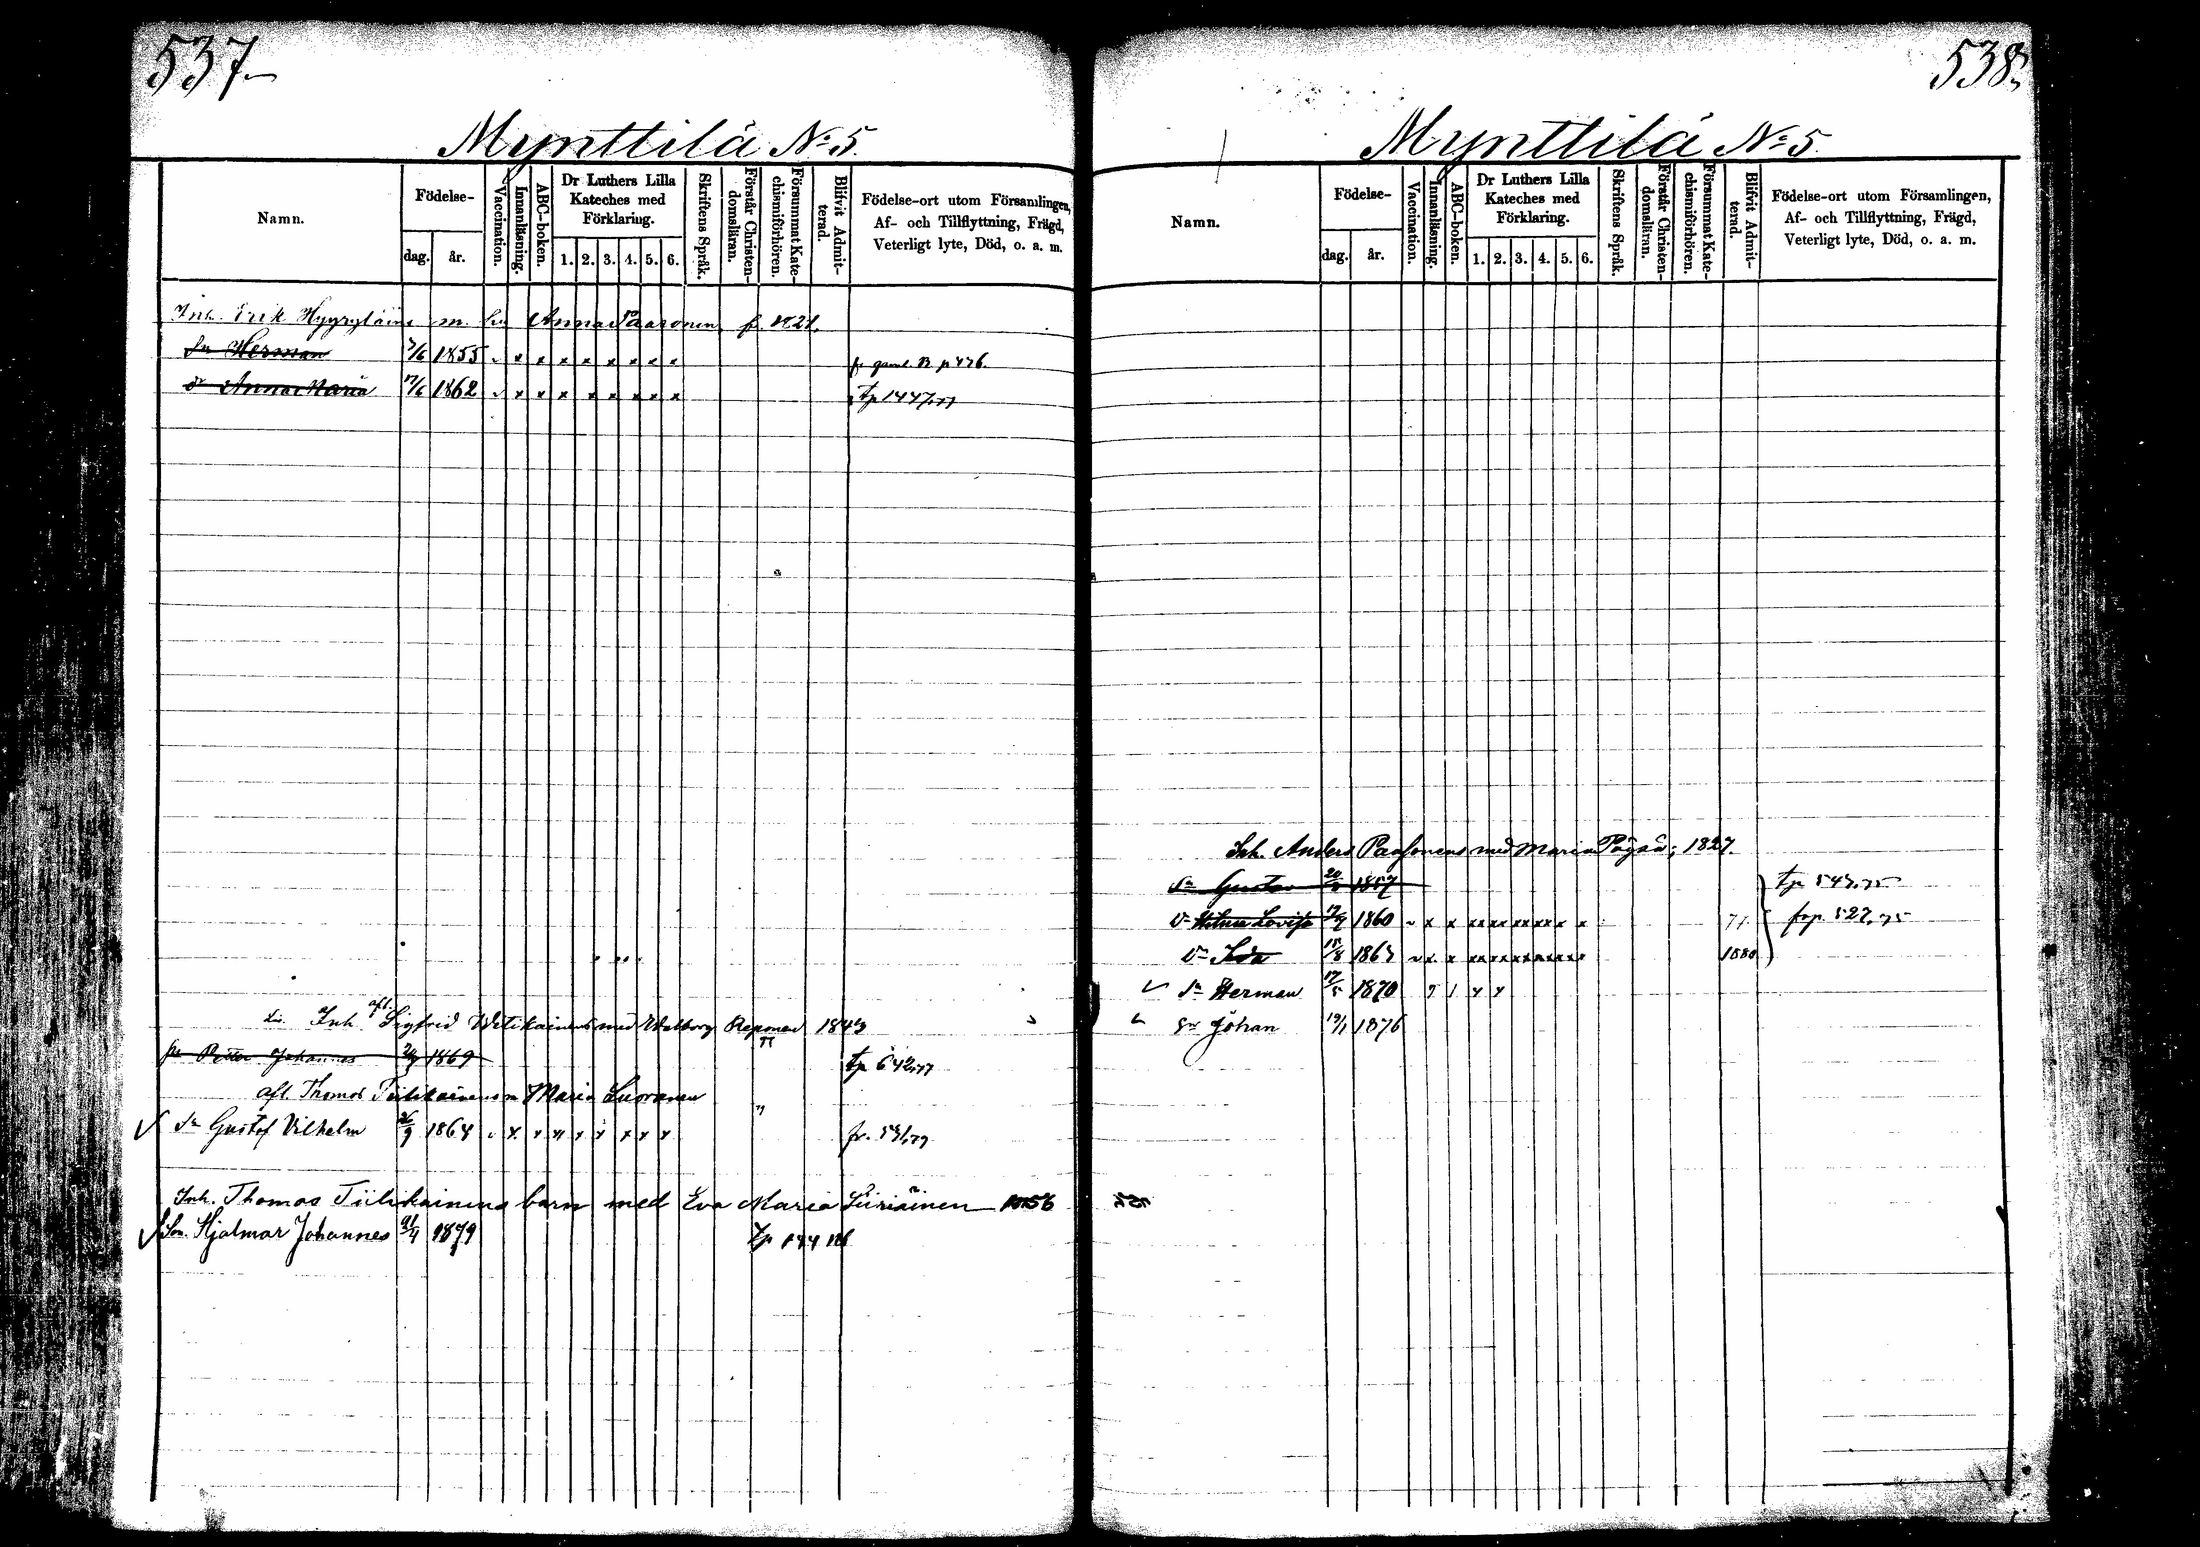 537
Mynttilä No 5.
Namn.
Födelse-
dag.
år.
Vaccination.
Innanläsning.
ABC-boken.
Dr Luthers Lilla
Kateches med
Förklaring.
1. 2. 3. 4. 5. 6.
Skriftens Språk.
Förstår Christen-
domsläran.
Försummat Kate-
chismiförhören.
Blifvit Admit-
terad.
Födelse-ort utom Församlingen,
Af- och Tillflyttning, Frägd,
Veterligt lyte, Död, o. a. m.
Inh. Erik m. Anna f. 1821.
Sn Herman 1855 x x x x x x x x fr gaml. B p 476.
dr Anna Maria 1862 x x x x x x x x tp 1447.77
Inh afl. Sigfrid med Walborg Reponen 1843
Petter Johannes 1869 tp 642.77
afl. Thomas Tiilikainens m Maria Suoranen
Sn Gustof Vilhelm 26/9 1864 x x x x x x x x fr. 531.79
Inh. Thomas Tiilikainens barn med Eva Maria Siiriäinen 1856
Son. Hjalmar Johannes 21/4 1879 Tp 144
538
Mynttilä No 5.
Namn.
Födelse-
dag.
år.
Vaccination.
Innanläsning.
ABC-boken.
Dr Luthers Lilla
Kateches med
Förklaring.
1. 2. 3. 4. 5. 6.
Skriftens Språk.
Förstår Christen-
domsläran.
Försummat Kate-
chismiförhören.
Blifvit Admit-
terad.
Födelse-ort utom Församlingen,
Af- och Tillflyttning, Frägd,
Veterligt lyte, Död, o. a. m.
Inh. Anders Paasonens med Maria Pöysä; 1827.
Sn Gustav 1857 tp 543.75
Dr Lovisa 1860 x x xx xx xx xx x x 77. frp. 527.75
Dr Ida 15/8 1863 x x xx xx xx xx xx x 1880
Sn Herman 17/5 1870
Johan 19/1 1876